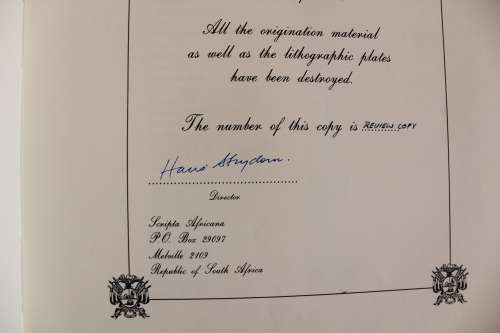 All the origination material
as well as the lithographic plates
have been destroyed.
The number of this copy is REVIEW COPY
Hans Strydom.
Director
Scripta Africana
P.O. Box 29097
Melville 2109
Republic of South Africa